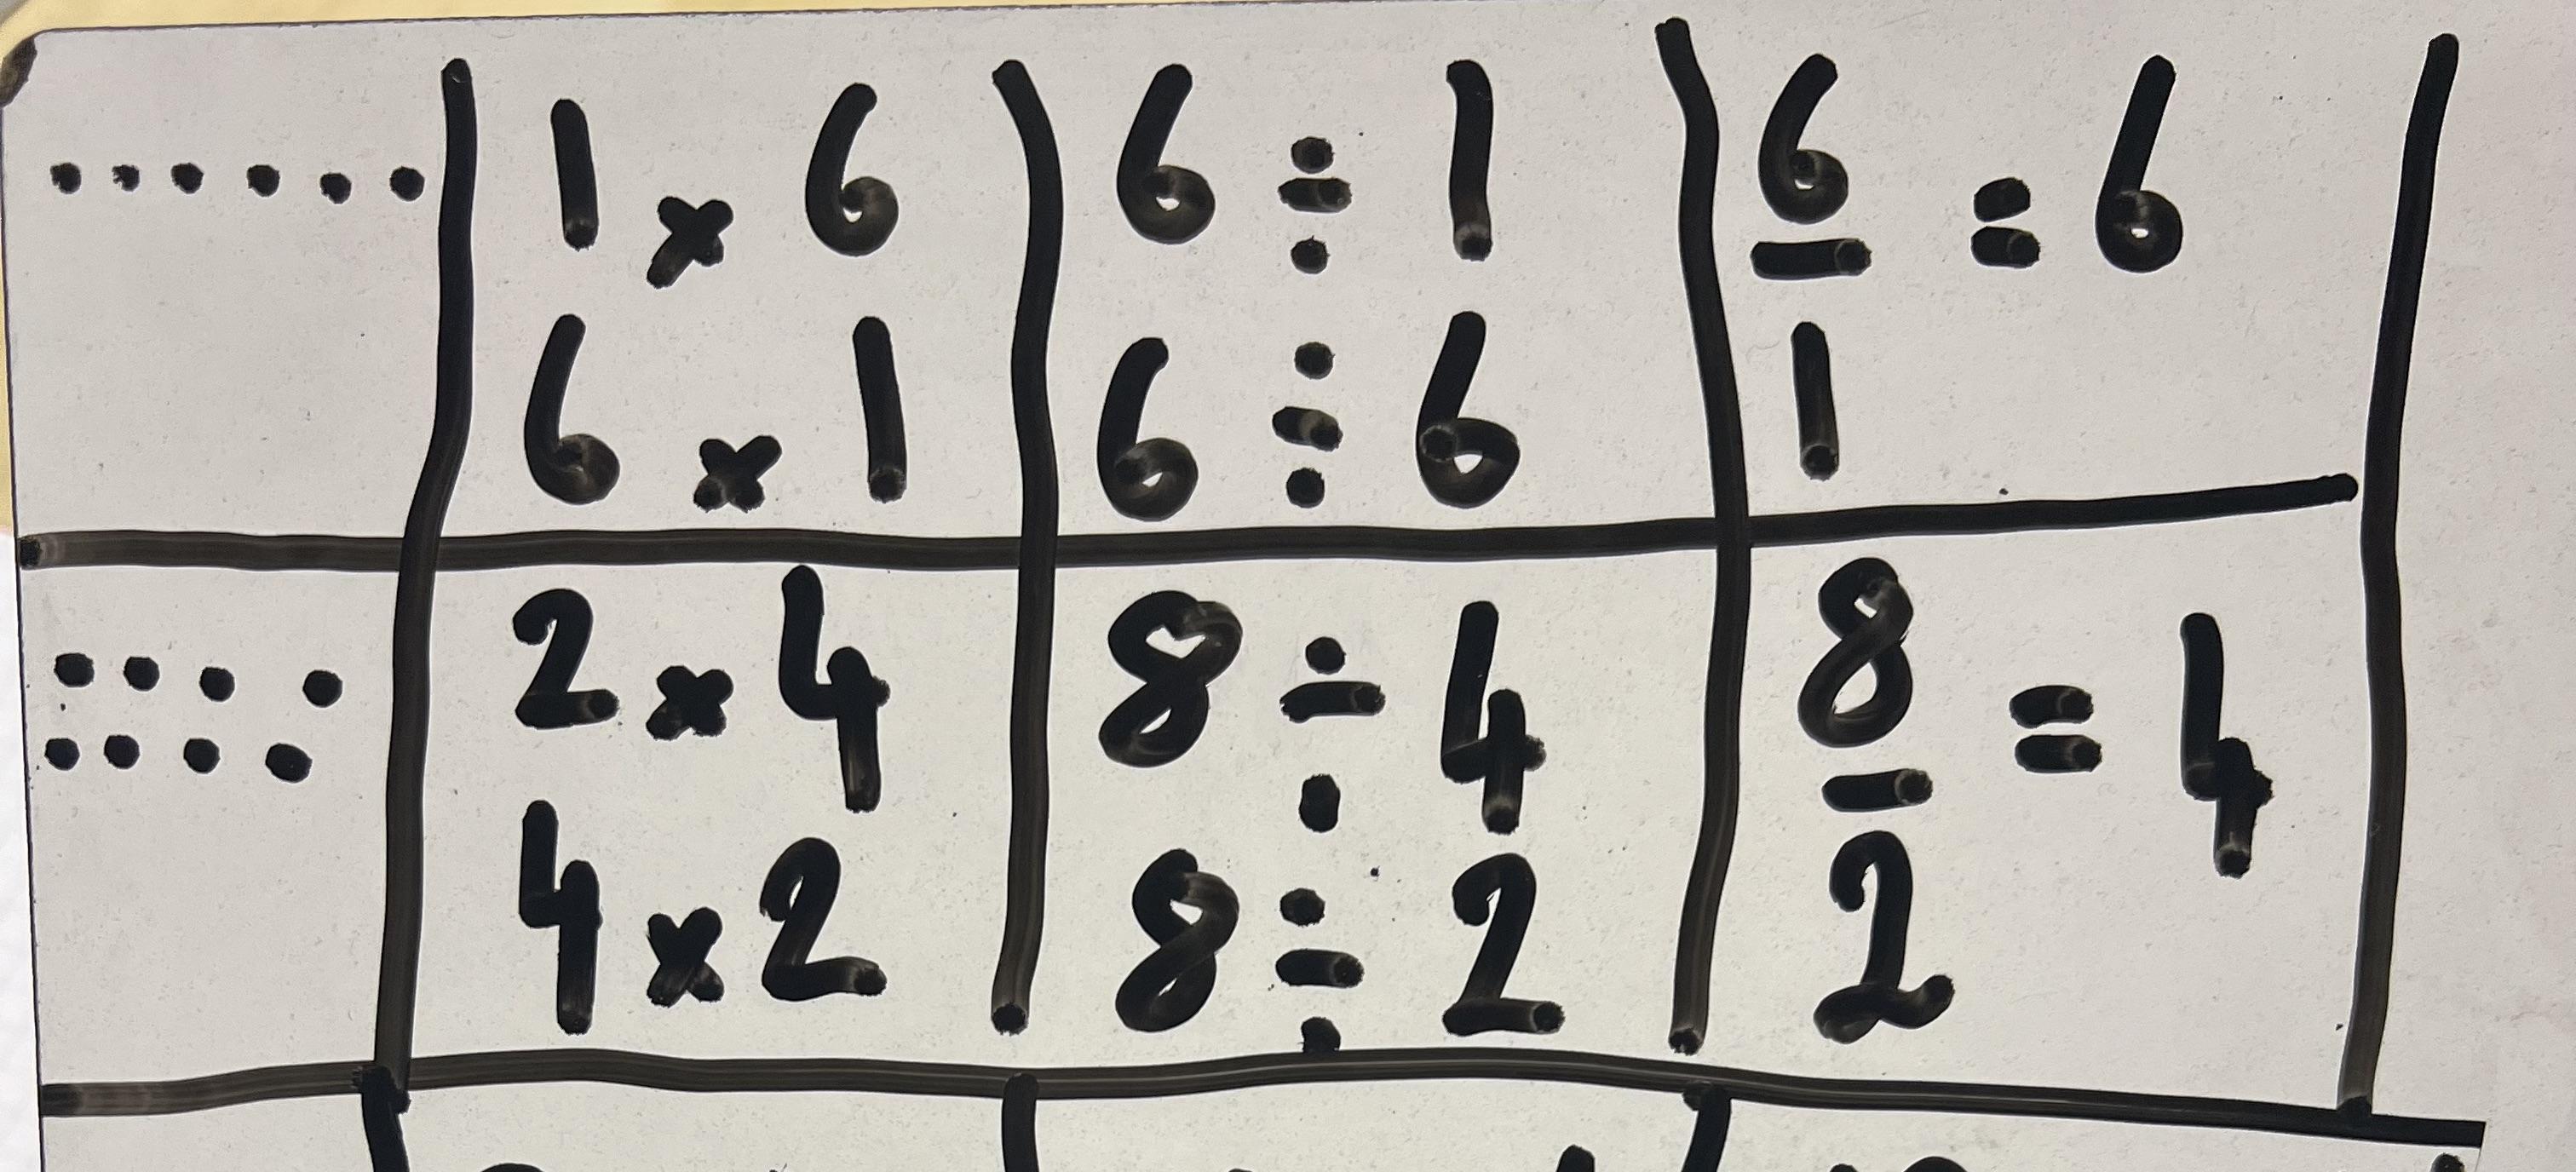 1 × 6
6 × 1
6 ÷ 1
6 ÷ 6
6/1 = 6
2 × 4
4 × 2
8 ÷ 4
8 ÷ 2
8/2 = 4